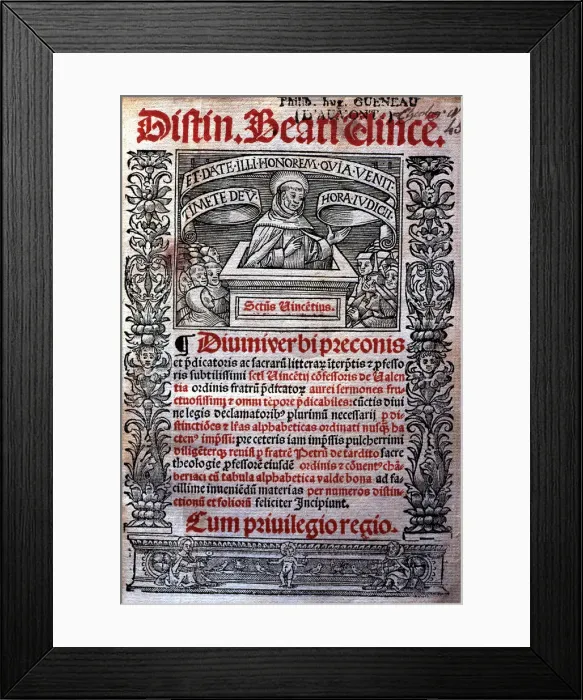 Philb. hug. GUENEAU
Distin. Beati Vincē.
ET·DATE·ILLI·HONOREM·QVIA·VENIT
TIMETE DEV̄. HORA·IVDICII
Sctūs Vincētius.
¶ Diuini verbi preconis
et p̄dicatoris ac sacrarū litterarū īterp̄tis ⁊ ꝓfesso
ris subtilissimi scti Vincētij cōfessoris de Valen
tia ordinis fratrū p̄dicatorū aurei sermones fru
ctuosissimi ⁊ omni tēpore p̄dicabiles: cūctis diui
ne legis declamatoribꝰ plurimū necessarij ꝑ di-
stinctiōes ⁊ lr̄as alphabeticas ordinati nusqꝫ ha
ctenꝰ imp̄ssi: pre ceteris iam imp̄ssis pulcherrimi
diligēterqꝫ reuisi ꝑ fratrē Petrū de tardito sacre
theologie ꝓfessorē eiusdē ordinis ⁊ cōuentꝰ chā-
beriaci cū tabula alphabetica valde bona ad fa-
cillime inueniēdū materias per numeros distin-
ctionū et foliorū feliciter Incipiunt.
Cum priuilegio regio.